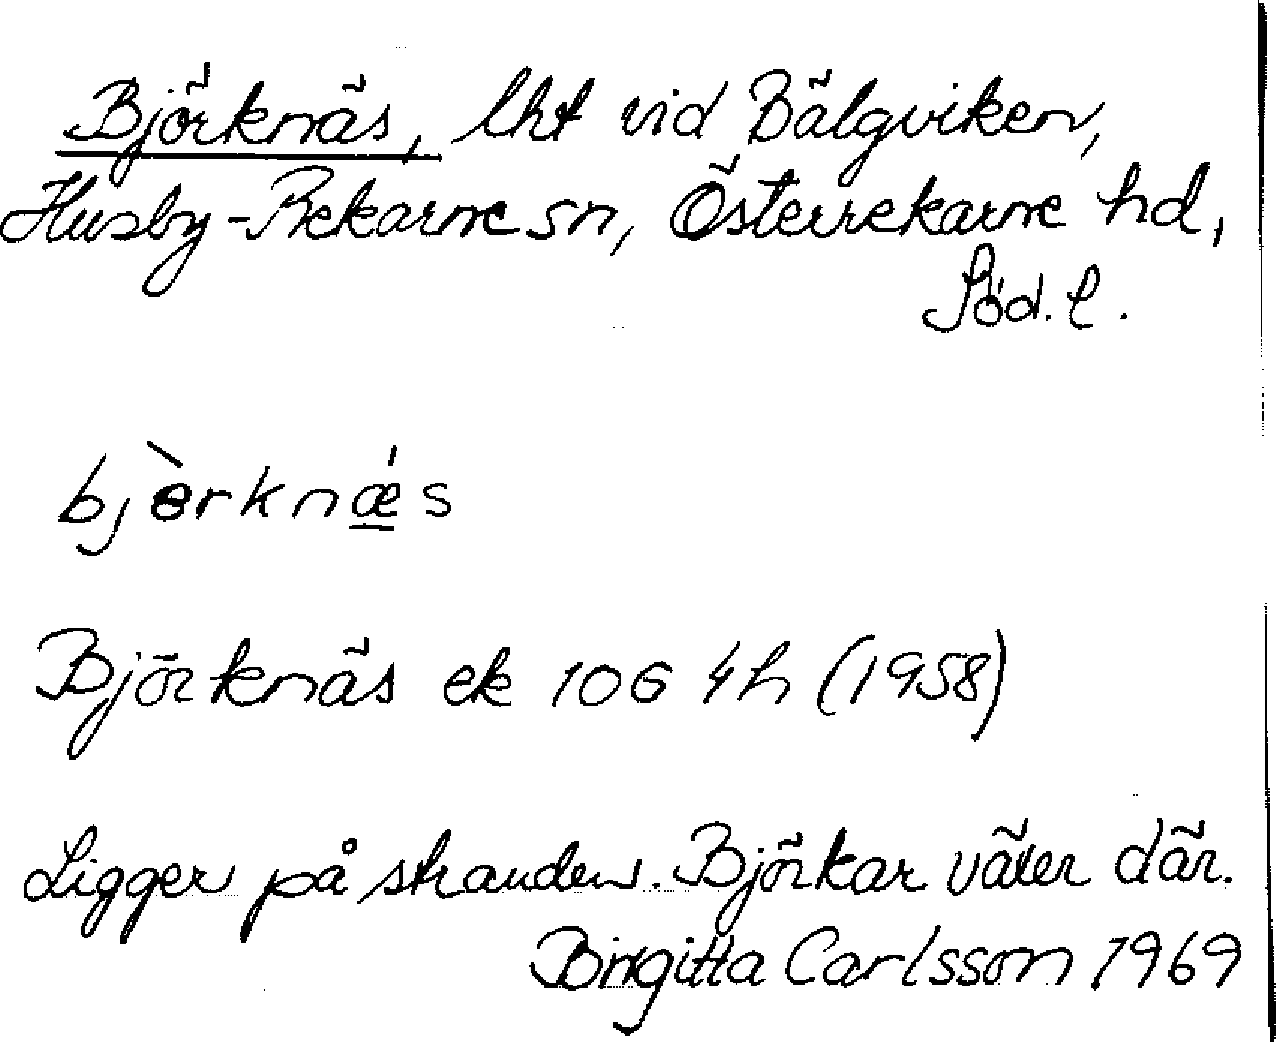 Björknäs, lht vid Bälgviken,
Husby-Rekarne sn, Österrekarne hd,
Söd. l.
bjèrknǽs
Björknäs ek 10G 4h (1958)
Ligger på stranden. Björkar växer där.
Birgitta Carlsson 1969